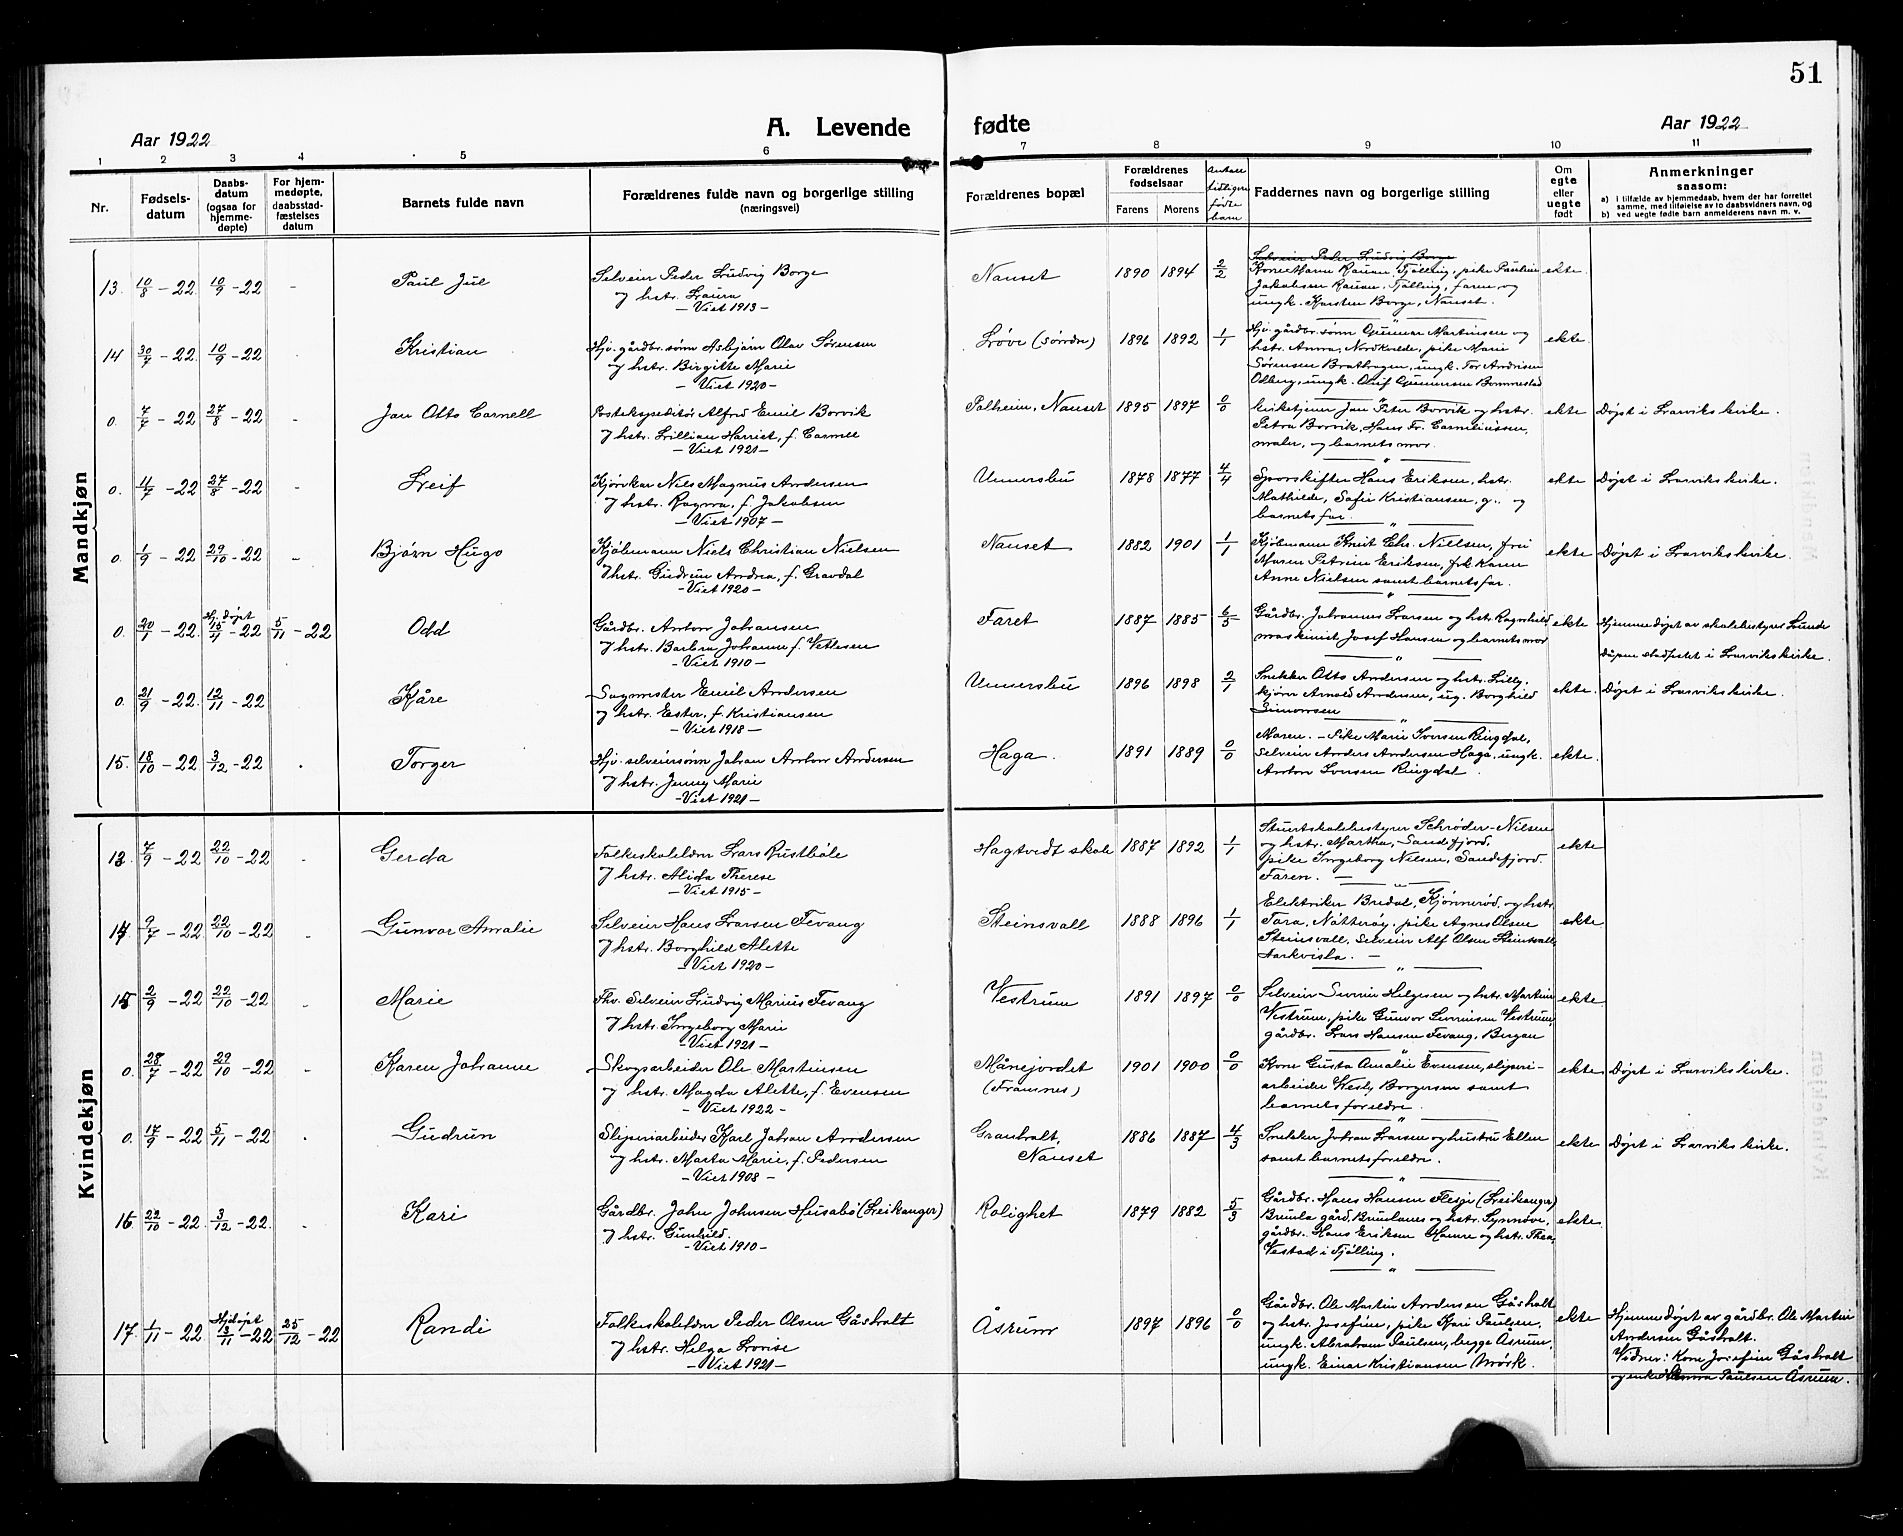 51
Aar 1922
A. Levende fødte
Aar 1922
1 2 3 4 5 6 7 8 9 10 11
Nr.
Fødsels-
datum
Daabs-
datum
(ogsaa for
hjemme-
døpte)
For hjem-
medøpte,
daabsstad-
fæstelses
datum
Barnets fulde navn
Forældrenes fulde navn og borgerlige stilling
(næringsvei)
Forældrenes bopæl
Forældrenes
fødselsaar
Farens Morens
Antall
tidligere
fødte
barn
Faddernes navn og borgerlige stilling
Om
egte
eller
uegte
født
Anmerkninger
saasom:
a) i tilfælde av hjemmedaab, hvem der har forrettet
samme, med tilføielse av to daabsvidners navn, og
b) ved uegte fødte barn anmelderens navn m. v.
Mandkjøn
13. 10/8 - 22 10/9 - 22 - Paul Jul
Selveier Peder Ludvig Borge
og hstr. Laura
- Viet 1913 -
Nanset 1890 1894 2/2
Selveier Peder Ludvig Borge
Kone Maren Rauan, Tjølling, pike Pauline
Jakobsen Rauan, Tjølling, faren og
ungk. Karsten Borge, Nanset.
ekte.
14 30/7 - 22 10/9 - 22 Kristian
Hjv. gårdbr. sønn Asbjørn Olav Sørensen
og hstr. Birgitte Marie
- Viet 1920 -
Løve (søndre) 1896 1892 1/1
Hjv. gårdbr. sønn Gunnar Martinsen og
hstr. Anna, Nordkvelde, pike Marie
Sørensen Brathagen, ungk. Tor Andrisen
Odberg, ungk. Oluf Gunnersen Bommestad
ekte.
0. 7/7 - 22 27/8 - 22 - Jan Otto Carnell
Postekspeditør Alfred Emil Borvik
og hstr. Lillian Harriet, f. Carnell
- Viet 1921 -
Solheim, Nanset 1895 1897 0/0
Kirketjener Jan Peter Borvik og hstr.
Petra Borvik, Hans Fr. Corneliussen,
maler, og barnets mor.
ekte Døpt i Larviks kirke.
0. 11/7 - 22 27/8 - 22 - Leif
Kjørekar Nils Magnus Andersen
og hstr. Ragna, f. Jakobsen
- Viet 1907 -
Unnersbu 1878 1877 4/4
Sporskifter Hans Eriksen, hstr.
Mathilde, Sofie Kristiansen, g., og
barnets far.
ekte Døpt i Larviks kirke.
0. 1/9 - 22 29/10 - 22 - Bjørn Hugo
Kjøbmann Niels Christian Nielsen
og hstr. Gudrun Andrea, f. Gravdal
- Viet 1920 -
Nanset 1882 1901 1/1
Kjøbmann Knut Chr. Nielsen, fru
Maren Petrine Eriksen, frk Karen
Anne Nielsen samt barnets far.
ekte Døpt i Larviks kirke.
0. 20/1 - 22 Hj. døpt 15/11 - 22 5/11 - 22 Odd
Gårdbr. Anton Johansen
og hstr. Barbra Johanne f. Vetlesen
- Viet 1910 -
Faret 1887 1885 6/5
Gårdbr. Johannes Larsen og hstr. Ragnhild
maskinist Josef Hansen og barnets mor
ekte Hjemmedøpt av skolebestyrer Lunde
Dåpen stadfestet i Larviks kirke.
0. 21/9 - 22 12/11 - 22 - Kåre
Sagmester Emil Andersen
og hstr. Ester, f. Kristiansen
- Viet 1918 -
Unnersbu 1896 1898 2/1
Snekker Otto Andersen og hstr. Lilly,
kjørn Arnold Andersen, ug. Borghild
Simonsen
ekte. Døpt i Larviks kirke.
15. 18/10 - 22 3/12 - 22 . Torger
Hjv. selveiersønn Johan Anton Andersen
og hstr. Jenny Marie
- Viet 1921 -
Haga. 1891 1889 0/0
Moren. - Pike Marie Iversen Ringdal,
Selveier Anders Andersen Haga, ungk.
Anton Iversen Ringdal.
ekte.
Kvindekjøn
13. 7/9 - 22 22/10 - 22 . Gerda
Folkeskolelærer Lars Rustböle
og hstr. Alida Therese
- Viet 1915 -
Hagtvedt skole 1887 1892 1/1
Stuertskolebestyrer Schrøder-Nielsen
og hstr. Martha, Sandefjord,
pike Ingeborg Nielsen, Sandefjord.
Faren. -
ekte
14 9/7 - 22 22/10 - 22 . Gunvor Amalie
Selveier Hans Larsen Fevang
og hstr. Borghild Alette
- Viet 1920 -
Steinsvall 1888 1896 1/1
Elektriker Bredal, Kjønnerød, og hstr.
Tara, Nøtterøy, pike Agnes Olsen
Steinsvall, selveier Alf Olsen Steinsvall,
ekte
15 2/9 - 22 22/10 - 22 . Marie
Fhv. Selveier Ludvig Marius Fevang
og hstr. Ingeborg Marie
- Viet 1921 -
Vestrum 1891 1897 0/0
Selveier Severin Helgesen og hstr. Martine
Vestrum, pike Gunvor Severinsen Vestrum,
gårdbr. Lars Hansen Fevang, Bergan
ekte
0. 28/7 - 22 29/10 - 22 Karen Johanne
Skogsarbeider Ole Martinsen
og hstr. Magda Alette, f. Evensen
- Viet 1922 -
Månejordet
(Framnes) 1901 1900 0/0
Kone Gusta Amalie Evensen, sliperi-
arbeider Wesly Borgersen samt
barnets foreldre.
ekte Døpt i Larviks kirke.
0. 17/9 - 22 5/11 - 22 . Gudrun
Sliperiarbeider Karl Johan Andersen
og hstr. Marta Marie, f. Pedersen
- Viet 1908 -
Granholt,
Nanset 1886 1887 4/3
Snekker Johan Larsen og hustru Ellen
samt barnets foreldre.
ekte Døpt i Larviks kirke.
16 22/10 - 22 3/12 - 22. . Kari
Gårdbr. John Johnsen Husabö (Leikanger)
og hstr. Gunhild.
- Viet 1910 -
Rolighet 1879 1882 5/3
Gårdbr. Hans Hansen Flesje (Leikanger)
Brunla gård, Brunlanes og hstr. Synnøve,
gårdbr. Hans Eriksen Hamre og hstr. Thea,
Vestad i Tjølling.
ekte.
17. 1/11 - 22 Hjdøpt 13/11 - 22 25/12 - 22 Randi
Folkeskolelærer Peder Olsen Gåsholt
og hstr. Helga Lovise
- Viet 1921 -
Åsrum 1897 1896 0/0
Gårdbr. Ole Martin Andersen Gåsholt
og hstr. Josefine, pike Kari Paulsen,
ungk. Abraham Paulsen, begge Åsrum,
ungk. Einar Kristiansen Mørk.
ekte Hjemmedøpt av gårdbr. Ole Martin
Andersen Gåsholt.
Vidner: Kone Josefine Gåsholt
og enke Anna Paulsen Åsrum.